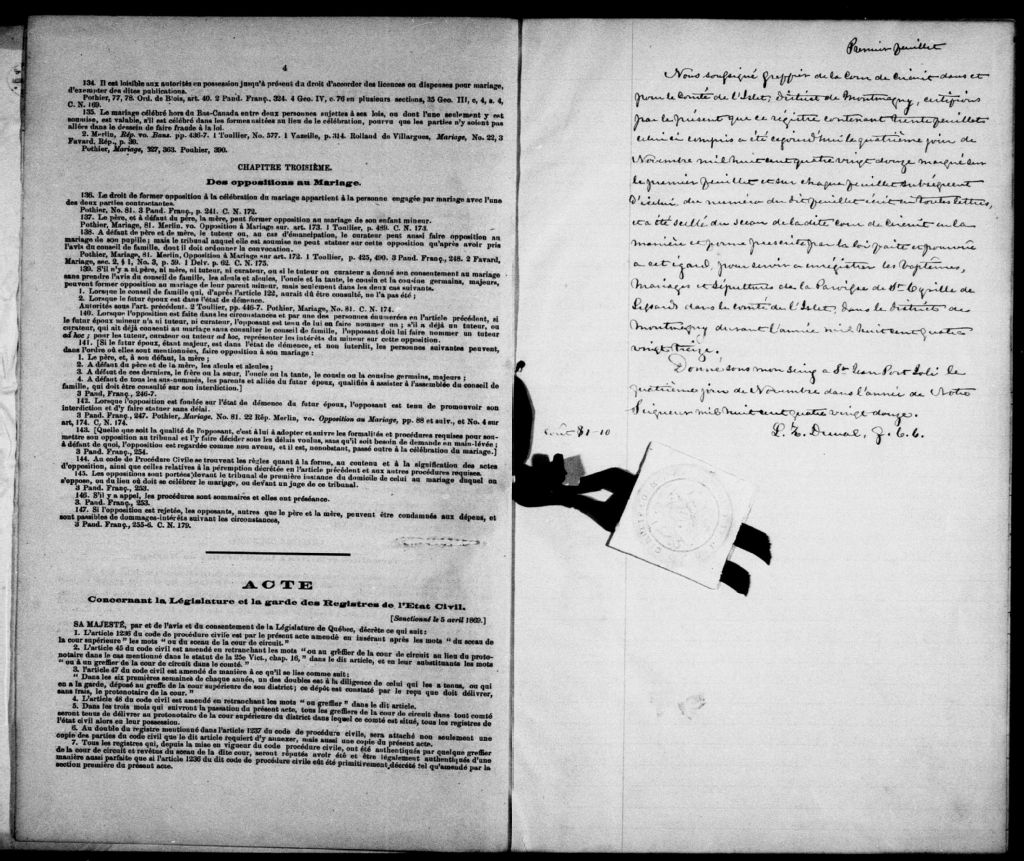 4
134. Il est loisible aux autorités en possession jusqu'à présent du droit d'accorder des licences ou dispenses pour mariage,
d'exempter des dites publications.
Pothier, 77, 78. Ord. de Blois, art. 40. 2 Pand. Franç., 324. 4 Geo. IV, c. 76 en plusieurs sections, 35 Geo. III, c, 4, s. 4,
C. N. 169.
135. Le mariage célébré hors du Bas-Canada entre deux personnes sujettes à ses lois, ou dont l'une seulement y est
soumise, est valable, s'il est célébré dans les formes usitées au lieu de la célébration, pourvu que les parties n'y soient pas
allées dans le dessein de faire fraude à la loi.
2. Merlin, Rép. vo. Bans. pp. 436-7. 1 Toullier, No. 577. 1 Vazeille, p. 314. Rolland de Villargues, Mariage, No. 22, 3
Favard. Rép., p. 30.
Pothier, Mariage, 327, 363. Pouhier, 390.
CHAPITRE TROISIÈME.
Des oppositions au Mariage.
136. Le droit de former opposition à la célébration du mariage appartient à la personne engagée par mariage avec l'une
des deux parties contractantes.
Pothier, No. 81. 3 Pand. Franç., p. 241. C. N. 172.
137. Le père, et à défaut du père, la mère, peut former opposition au mariage de son enfant mineur.
Pothier, Mariage, 81. Merlin. vo. Opposition à Mariage sur. art. 173. 1 Toullier, p. 489. C. N. 173.
138. A défaut de père et de mère, le tuteur ou, au cas d'émancipation, le curateur peut aussi faire opposition au
mariage de son pupille; mais le tribunal auquel elle est soumise ne peut statuer sur cette opposition qu'après avoir pris
l'avis du conseil de famille, dont il doit ordonner la convocation.
Pothier, Mariage, 81. Merlin, Opposition à Mariage sur art. 172. 1 Toullier, p. 425, 490. 3 Pand. Franç., 248. 2 Favard,
Mariage, sec. 2, § 1, No. 3, p. 59. 1 Delv. p. 62. C. N. 175.
139. S'il n'y a ni père, ni mère, ni tuteur, ni curateur, ou si le tuteur ou curateur a donné son consentement au mariage
sans prendre l'avis du conseil de famille, les aïeuls et aïeules, l'oncle et la tante, le cousin et la cousine germains, majeurs,
peuvent former opposition au mariage de leur parent mineur, mais seulement dans les deux cas suivants.
1. Lorsque le conseil de famille qui, d'après l'article 122, aurait dû être consulté, ne l'a pas été;
2. Lorsque le futur époux est dans l'état de démence.
Autorités sous l'art. précédent. 2 Toullier, pp. 446-7. Pothier, Mariage, No. 81. C. N. 174.
140. Lorsque l'opposition est faite dans les circonstances et par une des personnes énumérées en l'article précédent, si
le futur époux mineur n'a ni tuteur, ni curateur, l'opposant est tenu de lui en faire nommer un; s'il a déjà un tuteur, ou
curateur, qui ait déjà consenti au mariage sans consulter le conseil de famille, l'opposant doit lui faire nommer un tuteur
ad hoc; pour les tuteur, curateur ou tuteur ad hoc, représenter les intérêts du mineur sur cette opposition.
141. [Si le futur époux, étant majeur, est dans l'état de démence, et non interdit, les personnes suivantes peuvent,
dans l'ordre où elles sont mentionnées, faire opposition à son mariage:
1. Le père, et, à son défaut, la mère;
2. A défaut du père et de la mère, les aïeuls et aïeules;
3. A défaut de ces derniers, le frère ou la sœur, l'oncle ou la tante, le cousin ou la cousine germains, majeurs;
4. A défaut de tous les sus-nommés, les parents et alliés du futur époux, qualifiés à assister à l'assemblée du conseil de
famille, qui doit être consulté sur son interdiction.]
3 Pand. Franç., 246-7.
142. Lorsque l'opposition est fondée sur l'état de démence du futur époux, l'opposant est tenu de promouvoir son
interdiction et d'y faire statuer sans délai.
3 Pand. Franç., 247. Pothier, Mariage, No. 81. 22 Rép. Merlin, vo. Opposition au Mariage, pp. 88 et suiv., et No. 4 sur
art, 174. C. N. 174.
143. [Quelle que soit la qualité de l'opposant, c'est à lui à adopter et suivre les formalités et procédures requises pour sou-
mettre son opposition au tribunal et l'y faire décider sous les délais voulus, sans qu'il soit besoin de demande en main-levée;
à défaut de quoi, l'opposition est regardée comme non avenu, et il est, nonobstant, passé outre à la célébration du mariage.]
3 Pand. Franç., 254.
144. Au code de Procédure Civile se trouvent les règles quant à la forme, au contenu et à la signification des actes
d'opposition, ainsi que celles relatives à la péremption décrétée en l'article précédent et aux autres procédures requises.
145. Les oppositions sont portées devant le tribunal de première instance du domicile de celui au mariage duquel on
s'oppose, ou du lieu où doit se célébrer le mariage, ou devant un juge de ce tribunal.
3 Pand. Franç., 253.
146. S'il y a appel, les procédures sont sommaires et elles ont préséance.
3. Pand. Franç., 253.
147. Si l'opposition est rejetée, les opposants, autres que le père et la mère, peuvent être condamnés aux dépens, et
sont passibles de dommages-intérêts suivant les circonstances,
3 Pand. Franç., 255-6. C. N. 179.
ACTE
Concernant la Législature et la garde des Registres de l'Etat Civil.
[Sanctionné le 5 avril 1869.]
SA MAJESTÉ, par et de l'avis et du consentement de la Législature de Québec, décrète ce qui suit:
1. L'article 1236 du code de procédure civile est par le présent acte amendé en insérant après les mots "du sceau de
la cour supérieure" les mots "ou du sceau de la cour de circuit."
2. L'article 45 du code civil est amendé en retranchant les mots "ou au greffier de la cour de circuit au lieu du proto-
notaire dans le cas mentionné dans le statut de la 25e Vict., chap. 16," dans le dit article, et en leur substituants les mots
"ou à un greffier de la cour de circuit dans le comté."
3. l'article 47 du code civil est amendé de manière à ce qu'il se lise comme suit:
"Dans les six premières semaines de chaque année, un des doubles est à la diligence de celui qui les a tenus, ou qui
en a la garde, déposé au greffe de la cour supérieure de son district; ce dépôt est constaté par le reçu que doit délivrer,
sans frais, le protonotaire de la cour."
4. L'article 48 du code civil est amendé en retranchant les mots "ou greffier" dans le dit article.
5. Dans les trois mois qui suivront la passation du présent acte, tous les greffiers de la cour de circuit dans tout comté
seront tenus de délivrer au protonotaire de la cour supérieure du district dans lequel ce comté est situé, tous les registres de
l'état civil alors en leur possession.
6. Au double du registre mentionné dans l'article 1237 du code de procédure civile, sera attaché non seulement une
copie des parties du code civil que le dit article requiert d'y annexer, mais aussi une copie du présent acte.
7. Tous les registres qui, depuis la mise en vigueur du code procédure civile, ont été authentiqués par quelque greffier
de la cour de circuit et revêtus du sceau de la dite cour, seront réputés avoir été et être légalement authentiqués d'une
manière aussi parfaite que si l'article 1236 du dit code de procédure civile eût été primitivement décrété tel qu'amendé par la
section première du présent acte.
Premier feuillet
Nous soussigné greffier de la Cour de Circuit dans et
pour le Comté de L'Islet, District de Montmagny, certifions
par le présent que ce régistre contenant trente feuillets
celui-ci compris a été aujourd'hui le quatrième jour de
Novembre mil huit cent quatre vingt douze marqué sur
le premier feuillet et sur chaque feuillet subséquent
d'icelui du numéro du dit feuillet écrit en toutes lettres,
et a été scellé du sceau de la dite Cour de Circuit en la
manière et forme prescrite par la loi faite et pourvue
à cet égard, pour servir à enrégistrer les Baptêmes,
Mariages et Sépultures de la Paroisse de St. Cyrille de
Lessard dans le comté de L'Islet, dans le District de
Montmagny durant l'année mil huit cent quatre
vingt treize.
Donné sous mon seing à St. Jean Port Joli le
quatrième jour de Novembre dans l'année de Notre
Seigneur mil huit cent quatre vingt douze.
$1-10